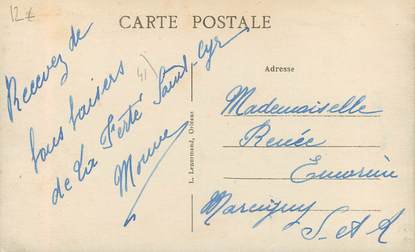 12€
CARTE POSTALE
41)
Recevez de
bons baisers
de La Ferté Saint-Cyr
L. Lenormand, Orléans
Adresse
Mademoiselle
Renée
Marcigny